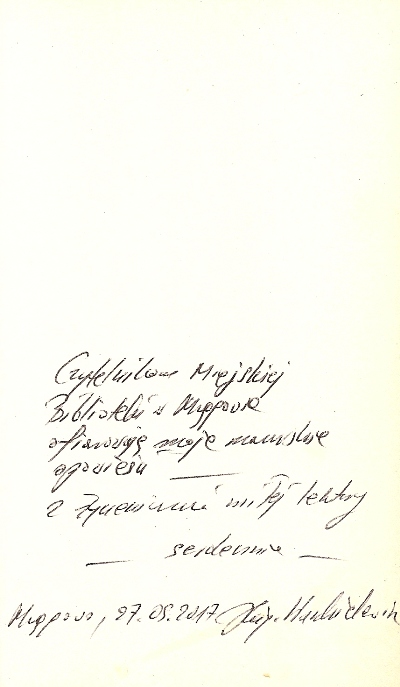 Czytelnikom Miejskiej
Biblioteki w Mrągowie
ofiarowuję moje mazurskie
opowieści
z życzeniami miłej lektury
serdecznie
Mrągowo, 27.05.2017